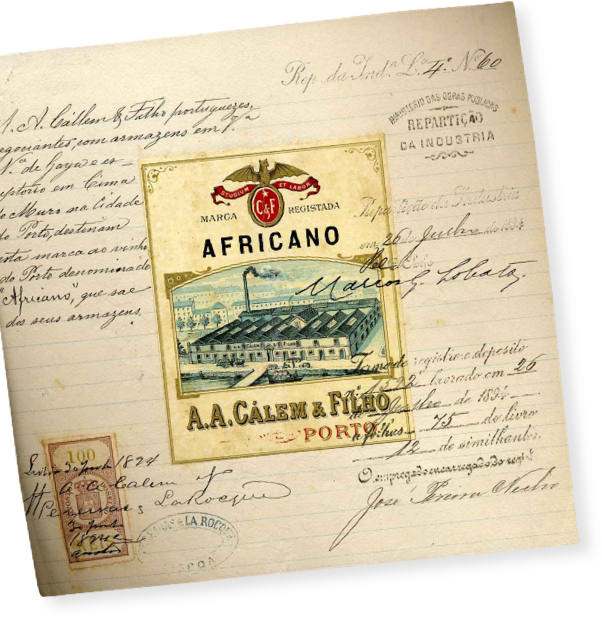 Rep. da Ind.ª L.º 4º Nº 60
MINISTERIO DAS OBRAS PUBLICAS
REPARTIÇÃO
DA INDUSTRIA
A. A. Cállem & Filho portuguezes,
negociantes, com armazens em V.ª
N.ª de Gaya e es-
criptorio em Cima
do Muro na Cidade
do Porto, destinam
esta marca ao vinho
do Porto denominado
"Africano", que sae
dos seus armazens.
STUDIUM ET LABOR
C&F
MARCA REGISTADA
AFRICANO
A.A. CÁLEM & FILHO
PORTO
Repartição da Industria
em 26 de Junho de 1894
Marcos G. Lobato
Termo de registro e deposito
nº 1522 lavrado em 26
de Junho de 1894
a folhas 75 do livro
12 de similhantes.
O empregado encarregado do regº
José Pereira
100
1894
A. A. Cálem
& LaRocque
LA ROCQUE
LISBOA